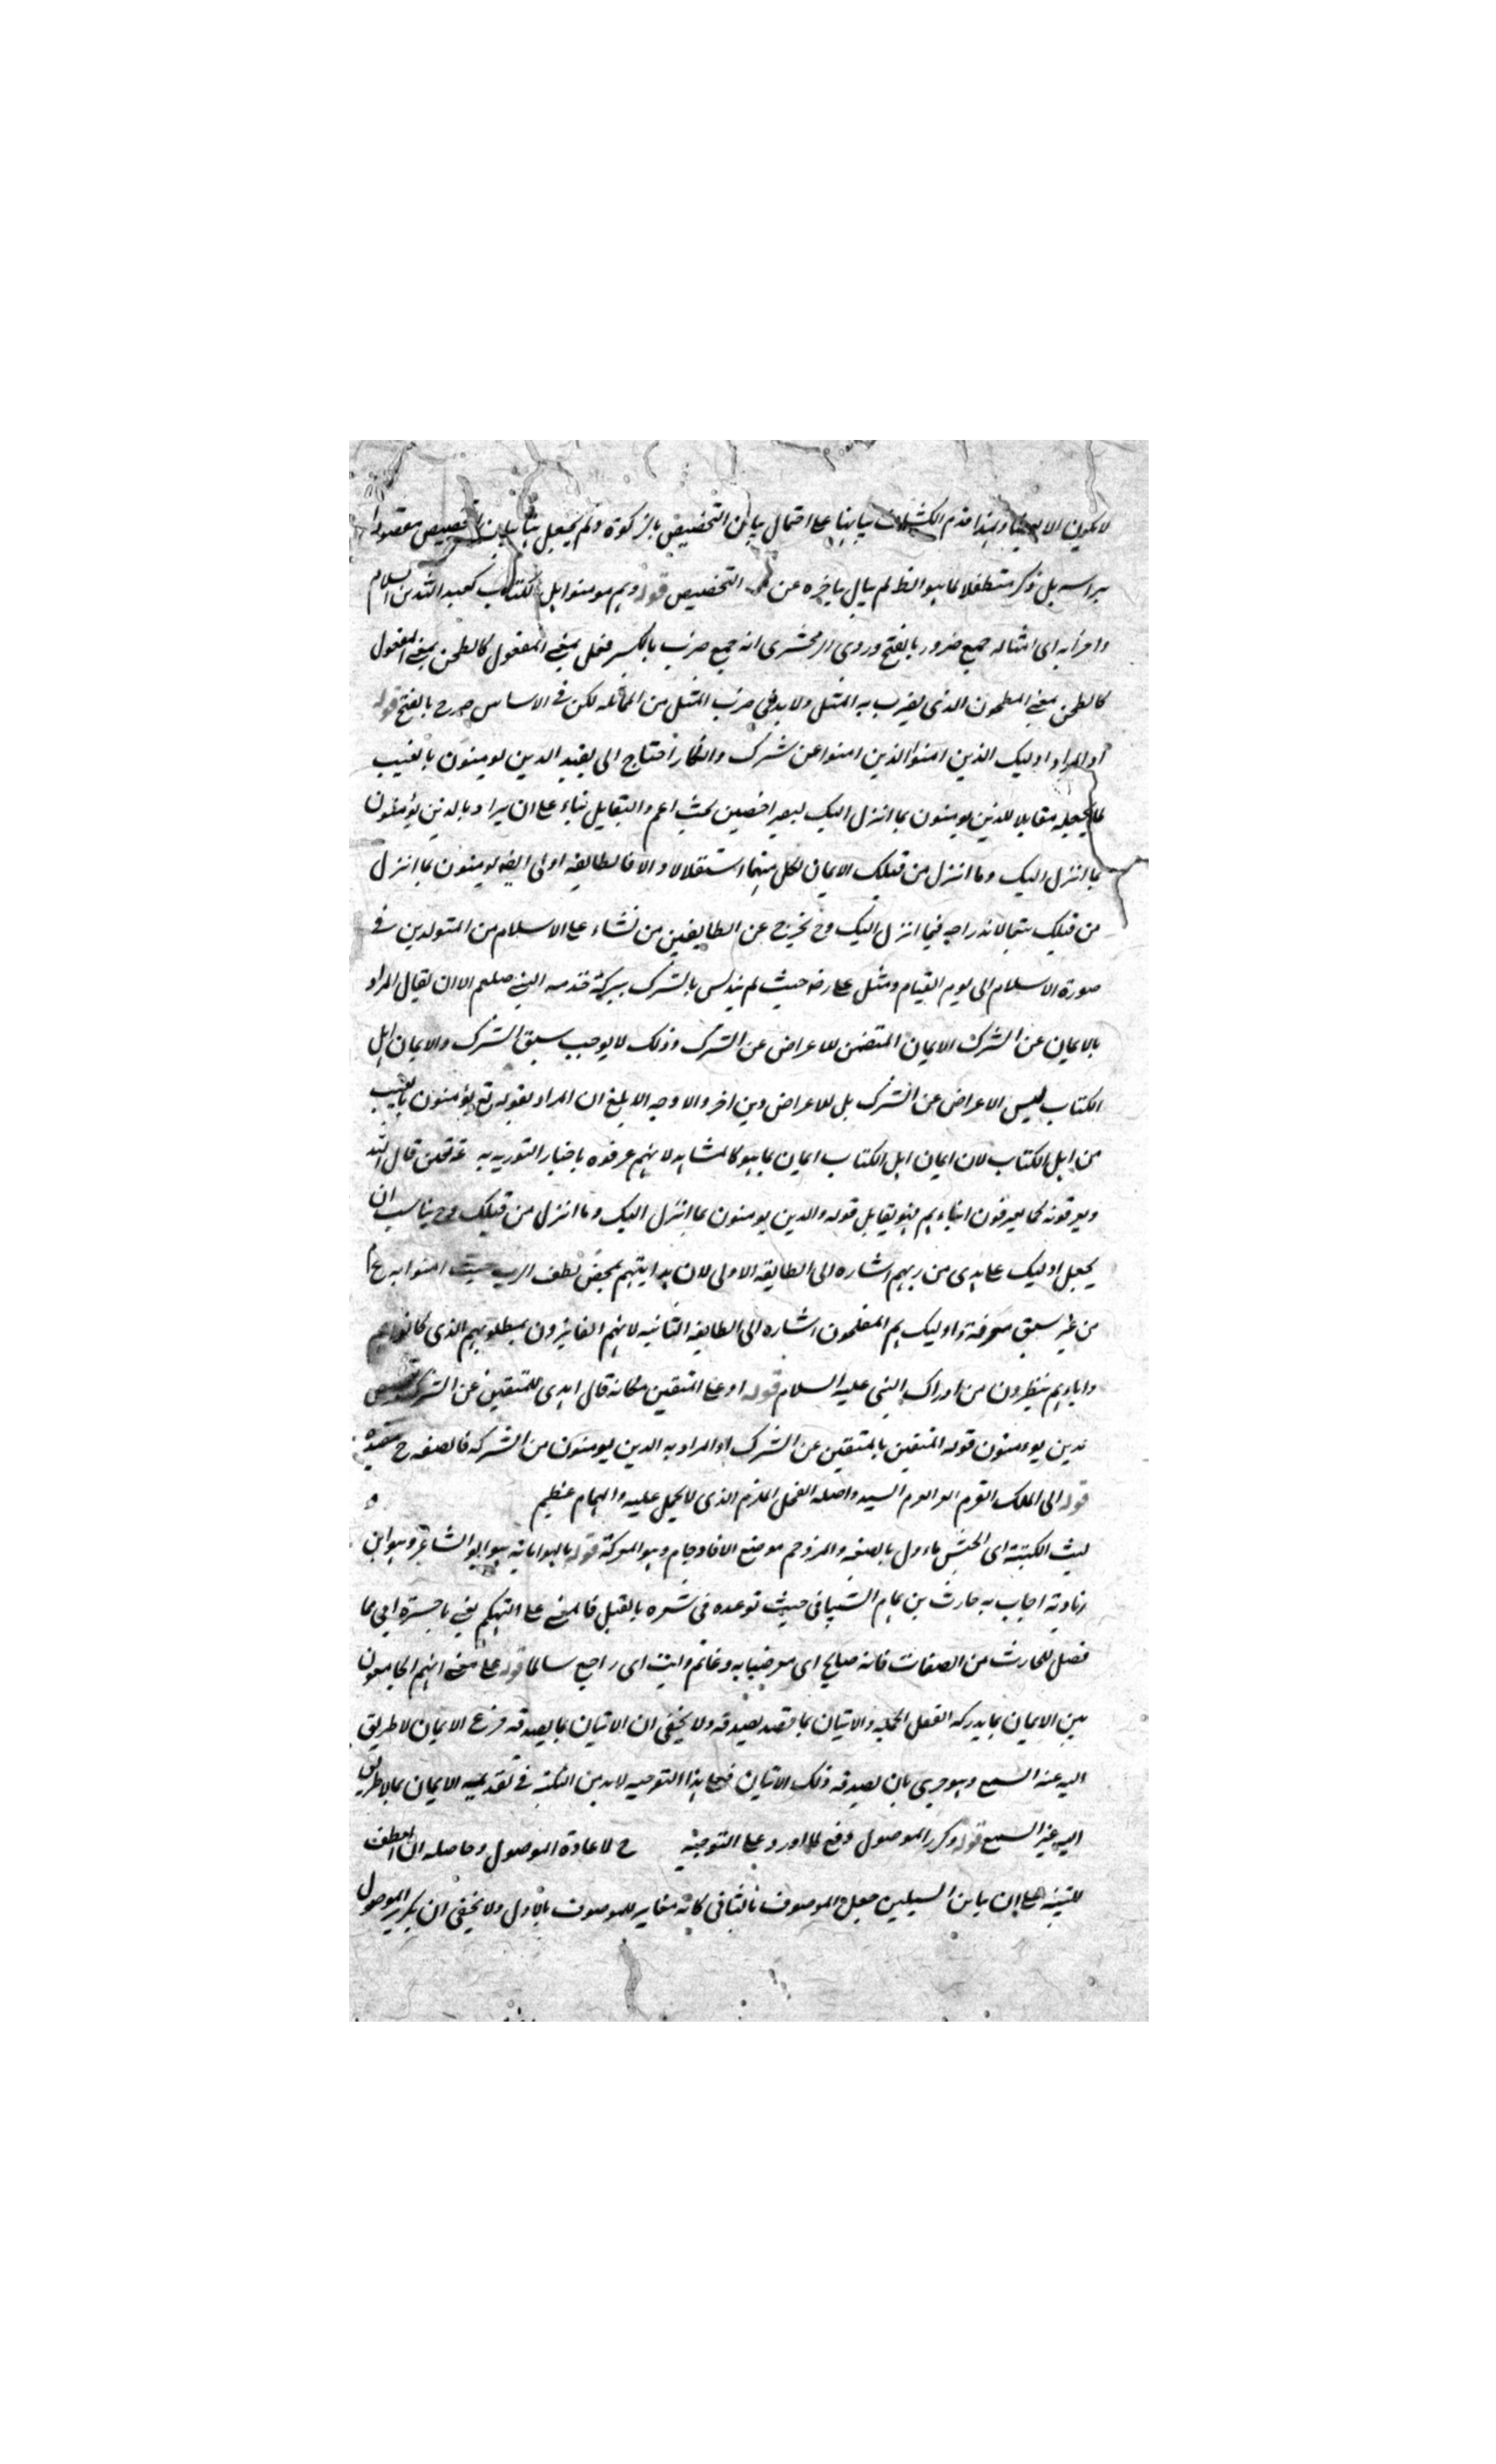 لا يكون الا وبهذا قدم بيانها على احتمال بيان التخصيص بالزكوة ولم يجعل بيان تخصيص مقصودا
براسه بل ذكر متطفلا لما هو اظ لم يبال بتاخره عن التخصيص قوله وهم مومنوا اهل الكتاب كعبد الله بن السلام
واضرابه اى امثاله جمع ضرب بالفتح وروى الزمخشرى انه جمع ضرب بالكسر فعل بمعنى المفعول كالطحن بمعنى المفعول
كالطحن بمعنى المطحون الذى يضرب به المثل ولا بد فى ضرب المثل من المماثله لكن فى الاساس صرح بالفتح قوله
او المراد اوليك الذين امنوا الذين امنوا عن شرك وانكار احتاج الى تقييد الدين يومنون بالغيب
لما يجعله مقابلا للذين يومنون بما انزل اليك ليصير اخصين تحت اعم والتقابل بناء على ان يراد بالدين يؤمنون
بما انزل اليك وما انزل من قبلك الايمان لكل منهما استقلالا والا فالطايفه اولى ايضا يومنون بما انزل
من قبلك تبعا لاندراجه فيما انزل اليك وح يخرج عن الطايفين من نشاء على الاسلام من المتولدين فى
صورة الاسلام الى يوم القيام ومثل على رضا حيث لم يتدلس بالشرك ببركة خدمه النبى صلعم الا ان يقال المراد
بالايمان عن الشرك الايمان المتضمن للاعراض عن الشرك وذلك لا يوجب سبق الشرك والايمان اهل
الكتاب ليس الاعراض عن الشرك بل للاعراض دين اخر والاوجه الابلغ ان المراد بقوله تع يؤمنون بالغيب
من اهل الكتاب لان ايمان اهل الكتاب ايمان بما هو كالمشاهد لانهم عرفوه باخبار التوريه به قال الله
ويعرفونه كما يعرفون ابناءهم فهو يقابل قوله والدين يومنون بما انزل اليك وما انزل من قبلك وح يناسب ان
يجعل اوليك على هدى من ربهم اشاره الى الطايفه الاولى لان هدايتهم بمحض لطف الرب حيث امنوا به
من غير سبق معرفة واوليك هم المفلحون اشاره الى الطايفه الثانيه لانهم الفايزون بمطلوبهم الذى كانوا هم
واباءهم ينظرون من ادراك النبى عليه السلام قوله او على المتقين فكانه قال هدى للمتقين عن الشرك
ندين يومنون قوله المتقين بالمتقين عن الشرك او المراد به الدين يومنون من الشركه فالصفه ح مقيده
قوله الى الملك القرم الواو القرم السيد واصله الفحل المكرم الذى لا يحمل عليه والهمام عظيم
ليث الكتيبة اى الجيش ماءول بالصفه والمزدحم موضع الازدحام وهو المعركة قوله يا لهوا بانه هو ابو الشاعر وهو ابن
زيادته اجاب به حارث بن همام الشيبانى حيث توعده فى شعره بالقتل فالمعنى على التهكم يعنى يا حسرة ابى مما
فصل للحارث من الصفات فانه صابح اى معرضبا به وغانم وايب اى راجع سالما قوله على معنى انهم الجامعون
بين الايمان بما يدركه العقل الجمله والاتيان بما قصد يصدقه ولا يخفى ان الاتيان بما يصدقه فرع الايمان لا طريق
اليه عنه السمع وهو حرى بان يصدقه ذلك الاتيان فعلى هذا التوجيه لا بد من النكته فى تقديمه الايمان بما لا طريق
اليه غير السمع قوله وكرر الموصول دفع لما اورد على التوجيه ح لاعادة الموصول وحاصله ان العطف
للتنبيه على ان تباين السبيلين جعل الموصوف بالثانى كانه مغاير للموصوف بالاول ولا يخفى ان تكرير الموصول